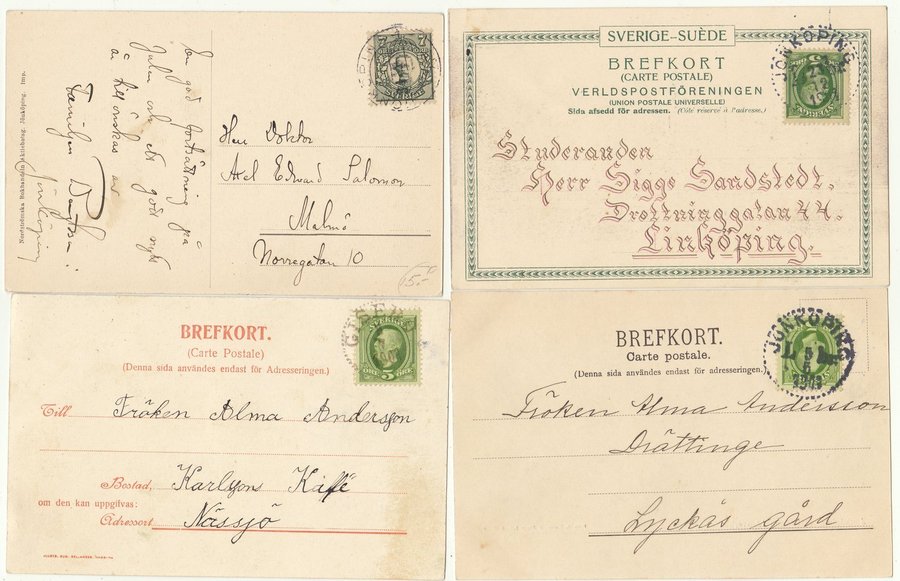 En god fortsättning på
Julen och ett godt nytt
år tillönskas av
Familjen
Jönköping
Nordströmska Bokhandeln Jönköping. Imp.
7
Herr Doktor
Axel Edward Salomon
Malmö
Norregatan 10
15:-
SVERIGE–SUÈDE
BREFKORT
(CARTE POSTALE)
VERLDSPOSTFÖRENINGEN
(UNION POSTALE UNIVERSELLE)
Sida afsedd för adressen. (Côté réservé à l'adresse.)
JÖNKÖPING
Studeranden
Herr Sigge Sandstedt.
Drottninggatan 44.
Linköping.
BREFKORT.
(Carte Postale)
(Denna sida användes endast för Adresseringen.)
SVERIGE
5
ÖRE ÖRE
Till Fröken Alma Andersson
Bostad, Karlsons Kaffé
om den kan uppgifvas:
Adressort Nässjö
BREFKORT.
Carte postale.
(Denna sida användes endast för adresseringen.)
JÖNKÖPING
Fröken Alma Andersson
Drättinge
Lyckås gård